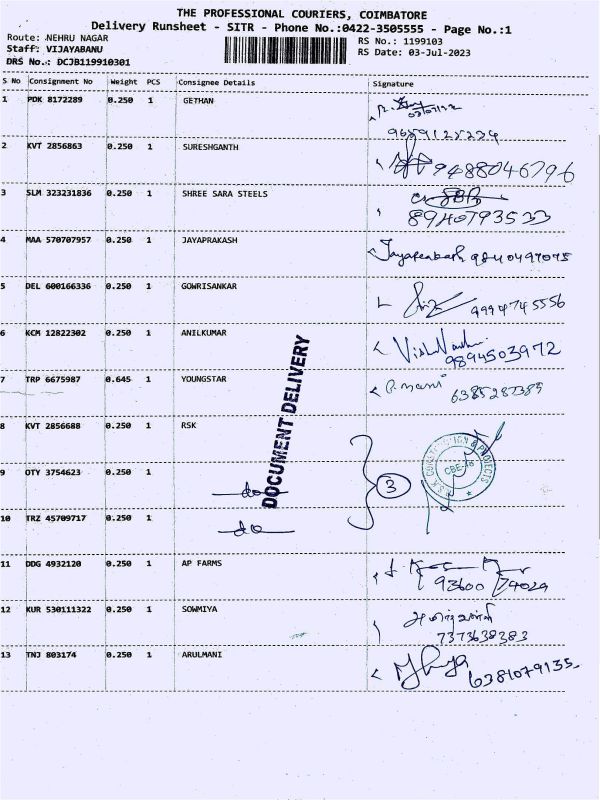 THE PROFESSIONAL COURIERS, COIMBATORE
Delivery Runsheet - SITR - Phone No.:0422-3505555 - Page No.:1
Route: NEHRU NAGAR
RS No.: 1199103
Staff: VIJAYABANU
RS Date: 03-Jul-2023
DRS No.: DCJB119910301
S No Consignment No Weight PCS Consignee Details Signature
1 PDK 8172289 0.250 1 GETHAN
2 KVT 2856863 0.250 1 SURESHGANTH 9488046796
3 SLM 323231836 0.250 1 SHREE SARA STEELS
8940793533
4 MAA 570707957 0.250 1 JAYAPRAKASH Jayaprakash 9840497075
5 DEL 600166336 0.250 1 GOWRISANKAR 9994745556
6 KCM 12822302 0.250 1 ANILKUMAR
9894503972
7 TRP 6675987 0.645 1 YOUNGSTAR P. mani 6385287389
8 KVT 2856688 0.250 1 RSK
DOCUMENT DELIVERY
9 OTY 3754623 0.250 1 do 3
CONSTRUCTION & PROJECTS
CBE-18
10 TRZ 45709717 0.250 1 do
11 DDG 4932120 0.250 1 AP FARMS
93600 74029
12 KUR 530111322 0.250 1 SOWMIYA
7373638383
13 TNJ 803174 0.250 1 ARULMANI 6381079135